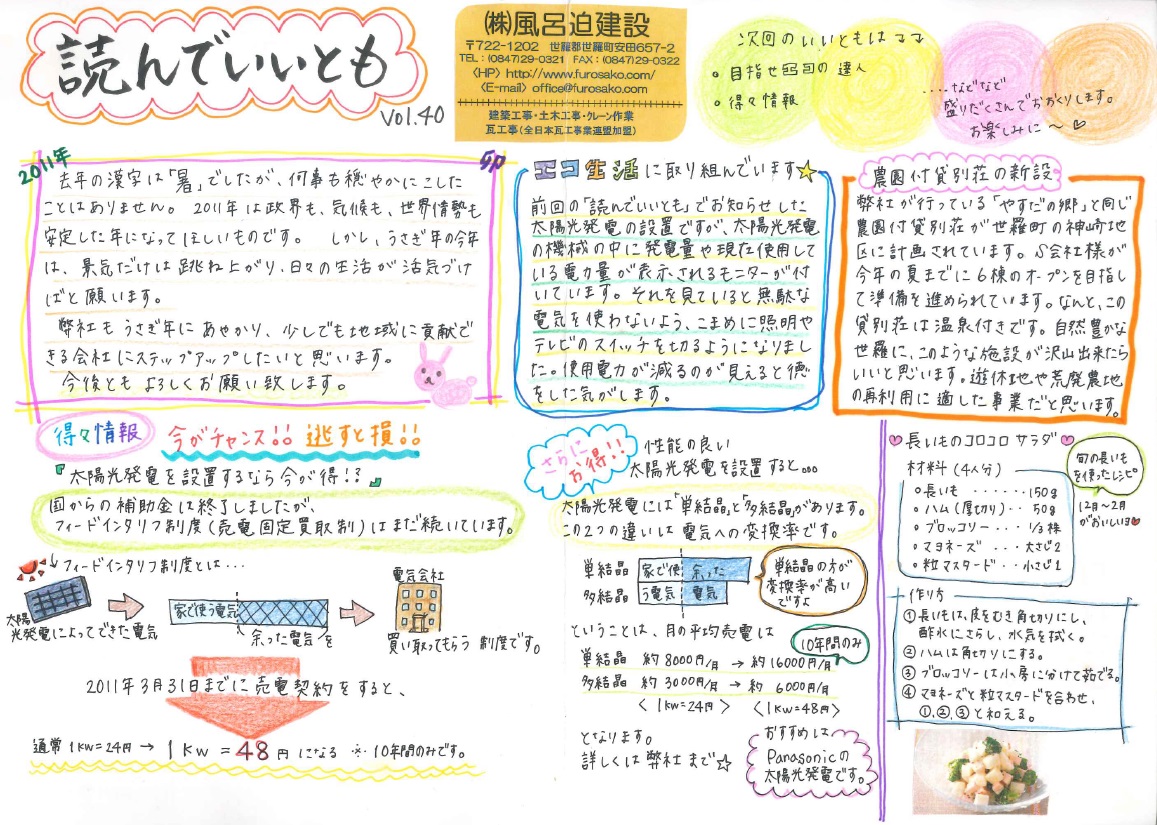 読んでいいとも
Vol.40
㈱風呂迫建設
〒722-1202 世羅郡世羅町安田657-2
TEL:(0847)29-0321 FAX:(0847)29-0322
〈HP〉http://www.furosako.com/
〈E-mail〉office@furosako.com
建築工事・土木工事・クレーン作業
瓦工事(全日本瓦工事業連盟加盟)
次回のいいともは↴↴
◦目指せエコの達人
◦得々情報
....などなど
盛りだくさんでおおくりします。
お楽しみに〜♡
2011年
卯
去年の漢字は「暑」でしたが、何事も穏やかにこした
ことはありません。2011年は政界も、気候も、世界情勢も
安定した年になってほしいものです。しかし、うさぎ年の今年
は、景気だけは跳ね上がり、日々の生活が活気づけ
ばと願います。
弊社もうさぎ年にあやかり、少しでも地域に貢献で
きる会社にステップアップしたいと思います。
今後ともよろしくお願い致します。
エコ生活に取り組んでいます☆
前回の「読んでいいとも」でお知らせした
太陽光発電の設置ですが、太陽光発電
の機械の中に発電量や現在使用して
いる電力量が表示されるモニターが付
いています。それを見ていると無駄な
電気を使わないよう、こまめに照明や
テレビのスイッチを切るようになりまし
た。使用電力が減るのが見えると徳
をした気がします。
農園付貸別荘の新設
弊社が行っている「やすだの郷」と同じ
農園付貸別荘が世羅町の神崎地
区に計画されています。S会社様が
今年の夏までに6棟のオープンを目指し
て準備を進められています。なんと、この
貸別荘は温泉付きです。自然豊かな
世羅に、このような施設が沢山出来たら
いいと思います。遊休地や荒廃農地
の再利用に適した事業だと思います。
得々情報 今がチャンス!! 逃すと損!!
『太陽光発電を設置するなら今が得!?』
国からの補助金は終了しましたが、
フィードインタリフ制度(売電固定買取制)はまだ続いています。
フィードインタリフ制度とは・・・
太陽
光発電によってできた電気
家で使う電気
余った電気を
電気会社
買い取ってもらう制度です。
2011年3月31日までに売電契約をすると、
通常1kw=24円→1kw=48円になる ※10年間のみです。
さらに
お得!!
性能の良い
太陽光発電を設置すると...
太陽光発電には「単結晶」と「多結晶」があります。
この2つの違いは電気への変換率です。
単結晶 家で使 余った
多結晶 う電気 電気
単結晶の方が
変換率が高い
ですよ
ということは、月の平均売電は
10年間のみ
単結晶 約8000円/月→約16000円/月
多結晶 約3000円/月→約6000円/月
〈1kw=24円〉 〈1kw=48円〉
となります。
詳しくは弊社まで☆
おすすめは
Panasonicの
太陽光発電です。
♥長いものコロコロサラダ♥
旬の長いも
を使ったレシピ
12月〜2月
がおいしいヨ♥
材料(4人分)
◦長いも ・・・・・・150g
◦ハム(厚切り)・・50g
◦ブロッコリー・・・1/3株
◦マヨネーズ・・・大さじ2
◦粒マスタード・・小さじ1
作り方
①長いもは、皮をむき角切りにし、
酢水にさらし、水気を拭く。
②ハムは角切りにする。
③ブロッコリーは小房に分けて茹でる。
④マヨネーズと粒マスタードを合わせ、
①,②,③と和える。